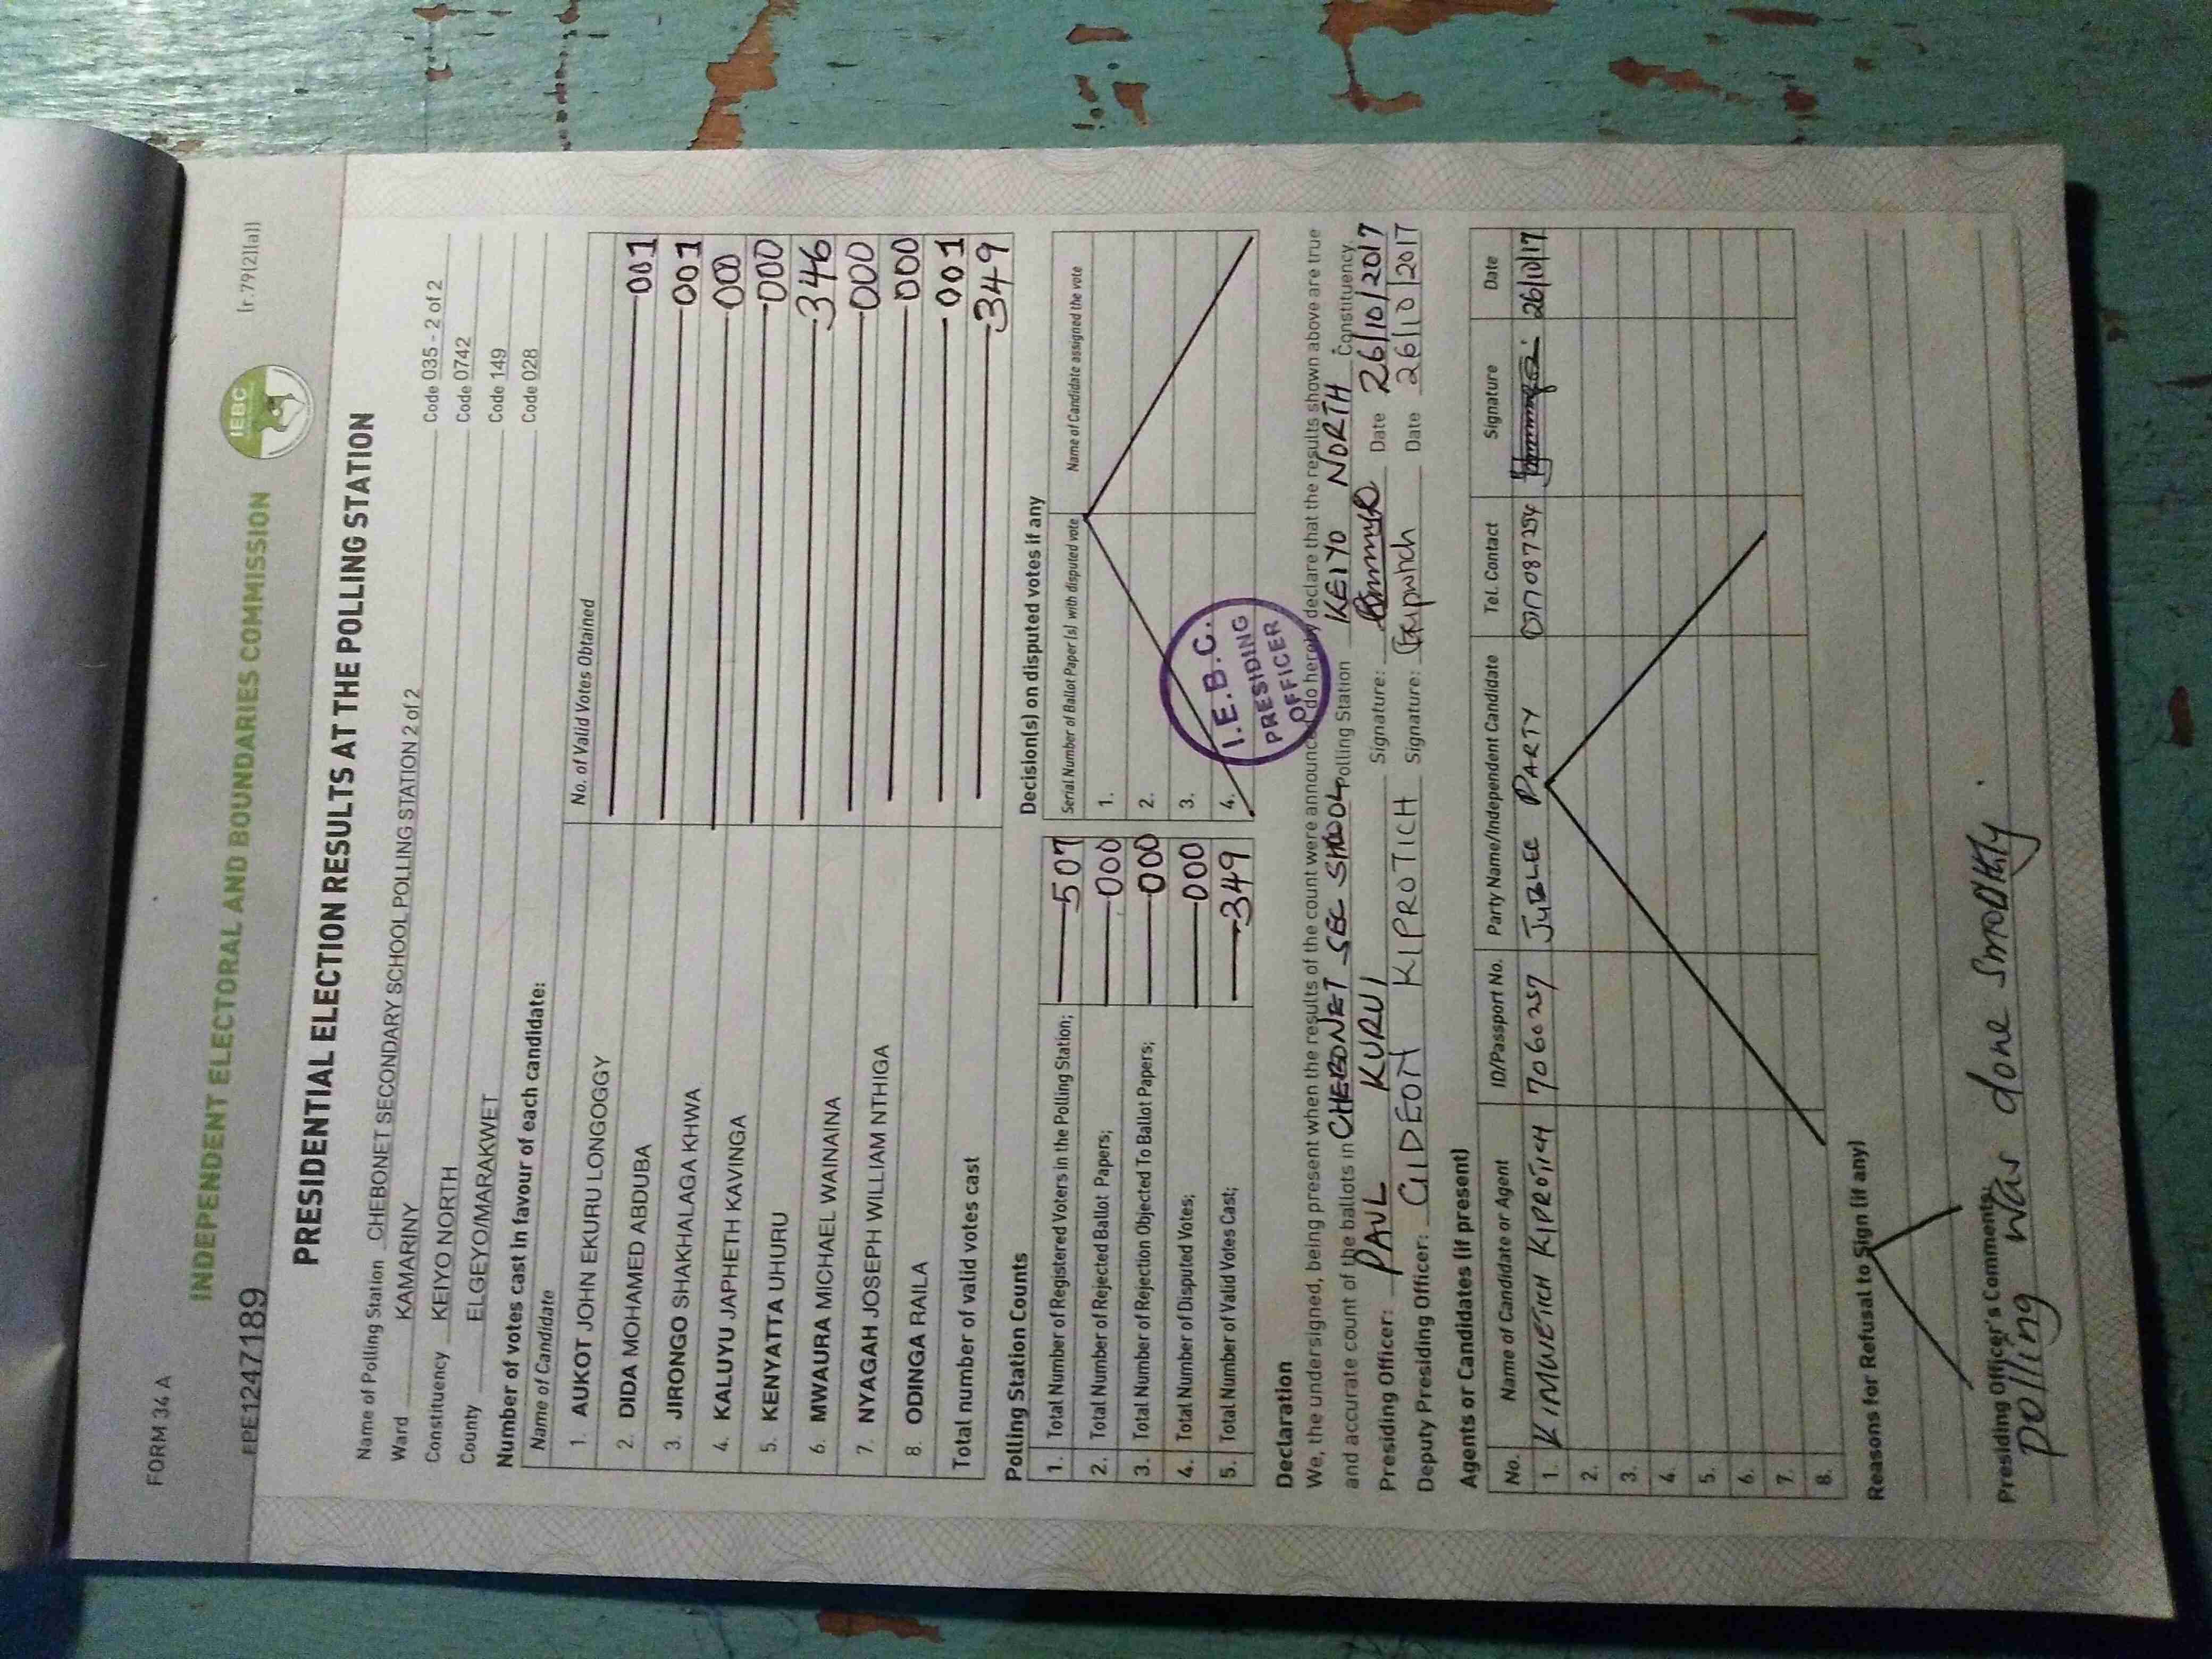 FORM 34 A
INDEPENDENT ELECTORAL AND BOUNDARIES COMMISSION
IEBC
[r.79(2)(a)]
EPE1247189
PRESIDENTIAL ELECTION RESULTS AT THE POLLING STATION
Name of Polling Station CHEBONET SECONDARY SCHOOL POLLING STATION 2 of 2 Code 035 - 2 of 2
Ward KAMARINY Code 0742
Constituency KEIYO NORTH Code 149
County ELGEYO/MARAKWET Code 028
Number of votes cast in favour of each candidate:
Name of Candidate No. of Valid Votes Obtained
1. AUKOT JOHN EKURU LONGOGGY 001
2. DIDA MOHAMED ABDUBA 001
3. JIRONGO SHAKHALAGA KHWA 000
4. KALUYU JAPHETH KAVINGA 000
5. KENYATTA UHURU 346
6. MWAURA MICHAEL WAINAINA 000
7. NYAGAH JOSEPH WILLIAM NTHIGA 000
8. ODINGA RAILA 001
Total number of valid votes cast 349
Polling Station Counts
1. Total Number of Registered Voters in the Polling Station; 507
2. Total Number of Rejected Ballot Papers; 000
3. Total Number of Rejection Objected To Ballot Papers; 000
4. Total Number of Disputed Votes; 000
5. Total Number of Valid Votes Cast; 349
Decision(s) on disputed votes if any
Serial Number of Ballot Paper (s) with disputed vote Name of Candidate assigned the vote
1.
2.
3.
4.
I.E.B.C.
PRESIDING
OFFICER
Declaration
We, the undersigned, being present when the results of the count were announced, do hereby declare that the results shown above are true
and accurate count of the ballots in CHEBONET SEC SHOOL Polling Station KEIYO NORTH Constituency.
Presiding Officer: PAUL KURUI Signature: Date 26/10/2017
Deputy Presiding Officer: GIDEON KIPROTICH Signature: Date 26/10/2017
Agents or Candidates (if present)
No. Name of Candidate or Agent ID/Passport No. Party Name/Independent Candidate Tel. Contact Signature Date
1. KIMWETICH KIPROTICH 7060257 JUBLEE PARTY 26/10/17
2.
3.
4.
5.
6.
7.
8.
Reasons for Refusal to Sign (if any)
Presiding Officer's Comments;
polling was done smoothly.